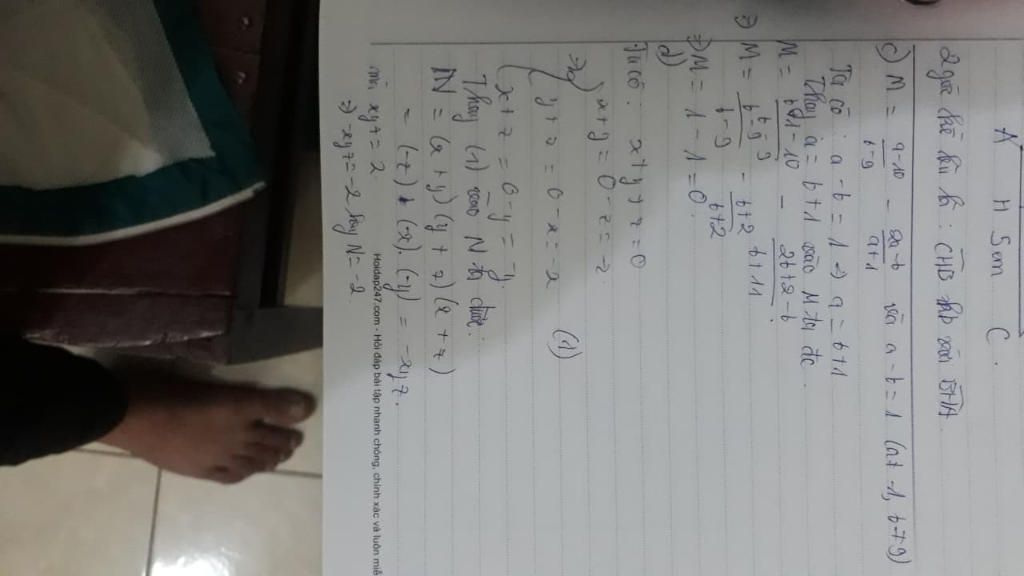 A
H 5cm C.
2 góc kề bù là: CHB AHB BHA
c) M = a-10/b-9 - 2a-b/a+1 và a-b=1 (a≠-1, b≠9)
Ta có: a-b=1 => a=b+1
Thay a=b+1 vào M ta đc.
M = b+1-10/b-9 - 2b+2-b/b+1+1
=> M = b-9/b-9 - b+2/b+2
=> M = 1-1=0.
d)
Ta có: x+y+z=0
=> x+y=0-z=-z
y+z=0-x=-x (1)
x+z=0-y=-y
Thay (1) vào N ta được:
N = (x+y)(y+z)(x+z)
= (-z).(-x).(-y) = -xyz.
mà xyz=2
=> -xyz=-2 Hay N=-2
Hoidap247.com - Hỏi đáp bài tập nhanh chóng, chính xác và luôn miễ